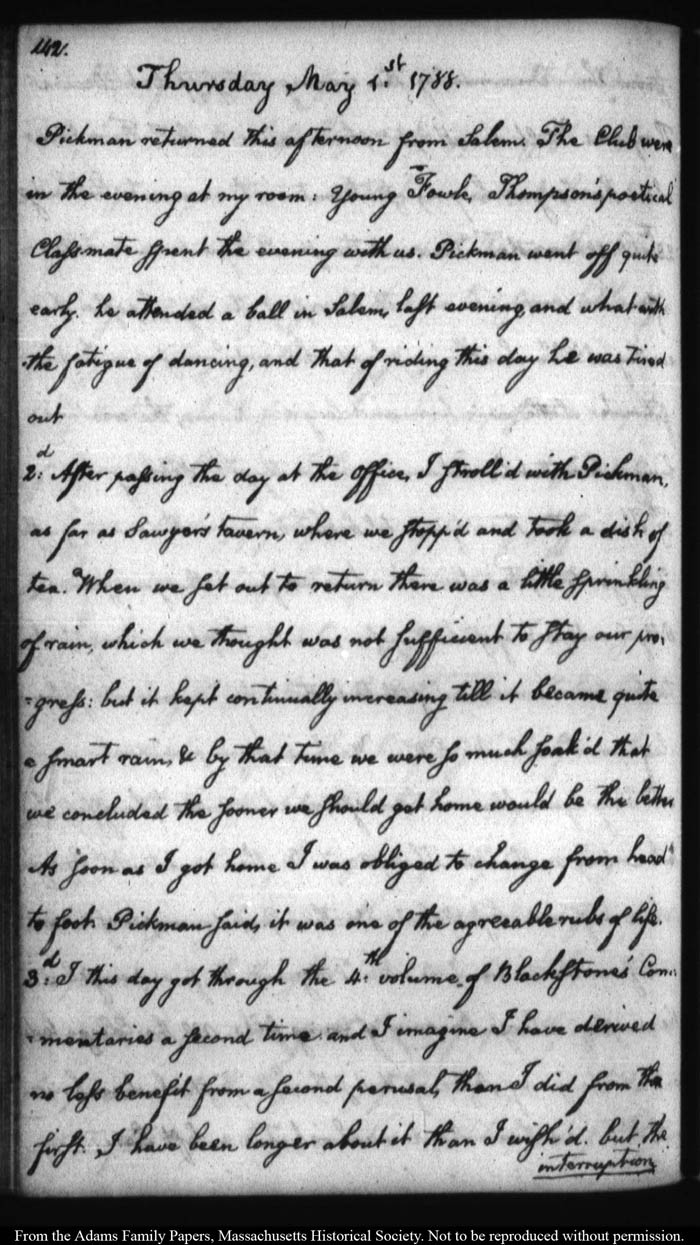 142.
Thursday May 1.st 1788.
Pickman returned this afternoon from Salem. The Club were
in the evening at my room: Young Fowle, Thompson's poetical
Classmate spent the evening with us. Pickman went off quite
early. he attended a ball in Salem, last evening, and what with
the fatigue of dancing, and that of riding this day he was tired
out
2:d After passing the day at the office, I stroll'd with Pickman,
as far as Sawyer's tavern, where we stopp'd and took a dish of
tea. When we set out to return there was a little sprinkling
of rain, which we thought was not sufficient to stay our pro-
=gress: but it kept continually increasing till it became quite
a smart rain, & by that time we were so much soak'd that
we concluded the sooner we should get home would be the better
As soon as I got home I was obliged to change from head
to foot. Pickman said, it was one of the agreeable rubs of life.
3:d I this day got through the 4:th volume of Blackstone's Com-
=mentaries a second time. and I imagine I have derived
no less benefit from a second perusal, than I did from the
first. I have been longer about it than I wish'd. but, the
interruption
From the Adams Family Papers, Massachusetts Historical Society. Not to be reproduced without permission.